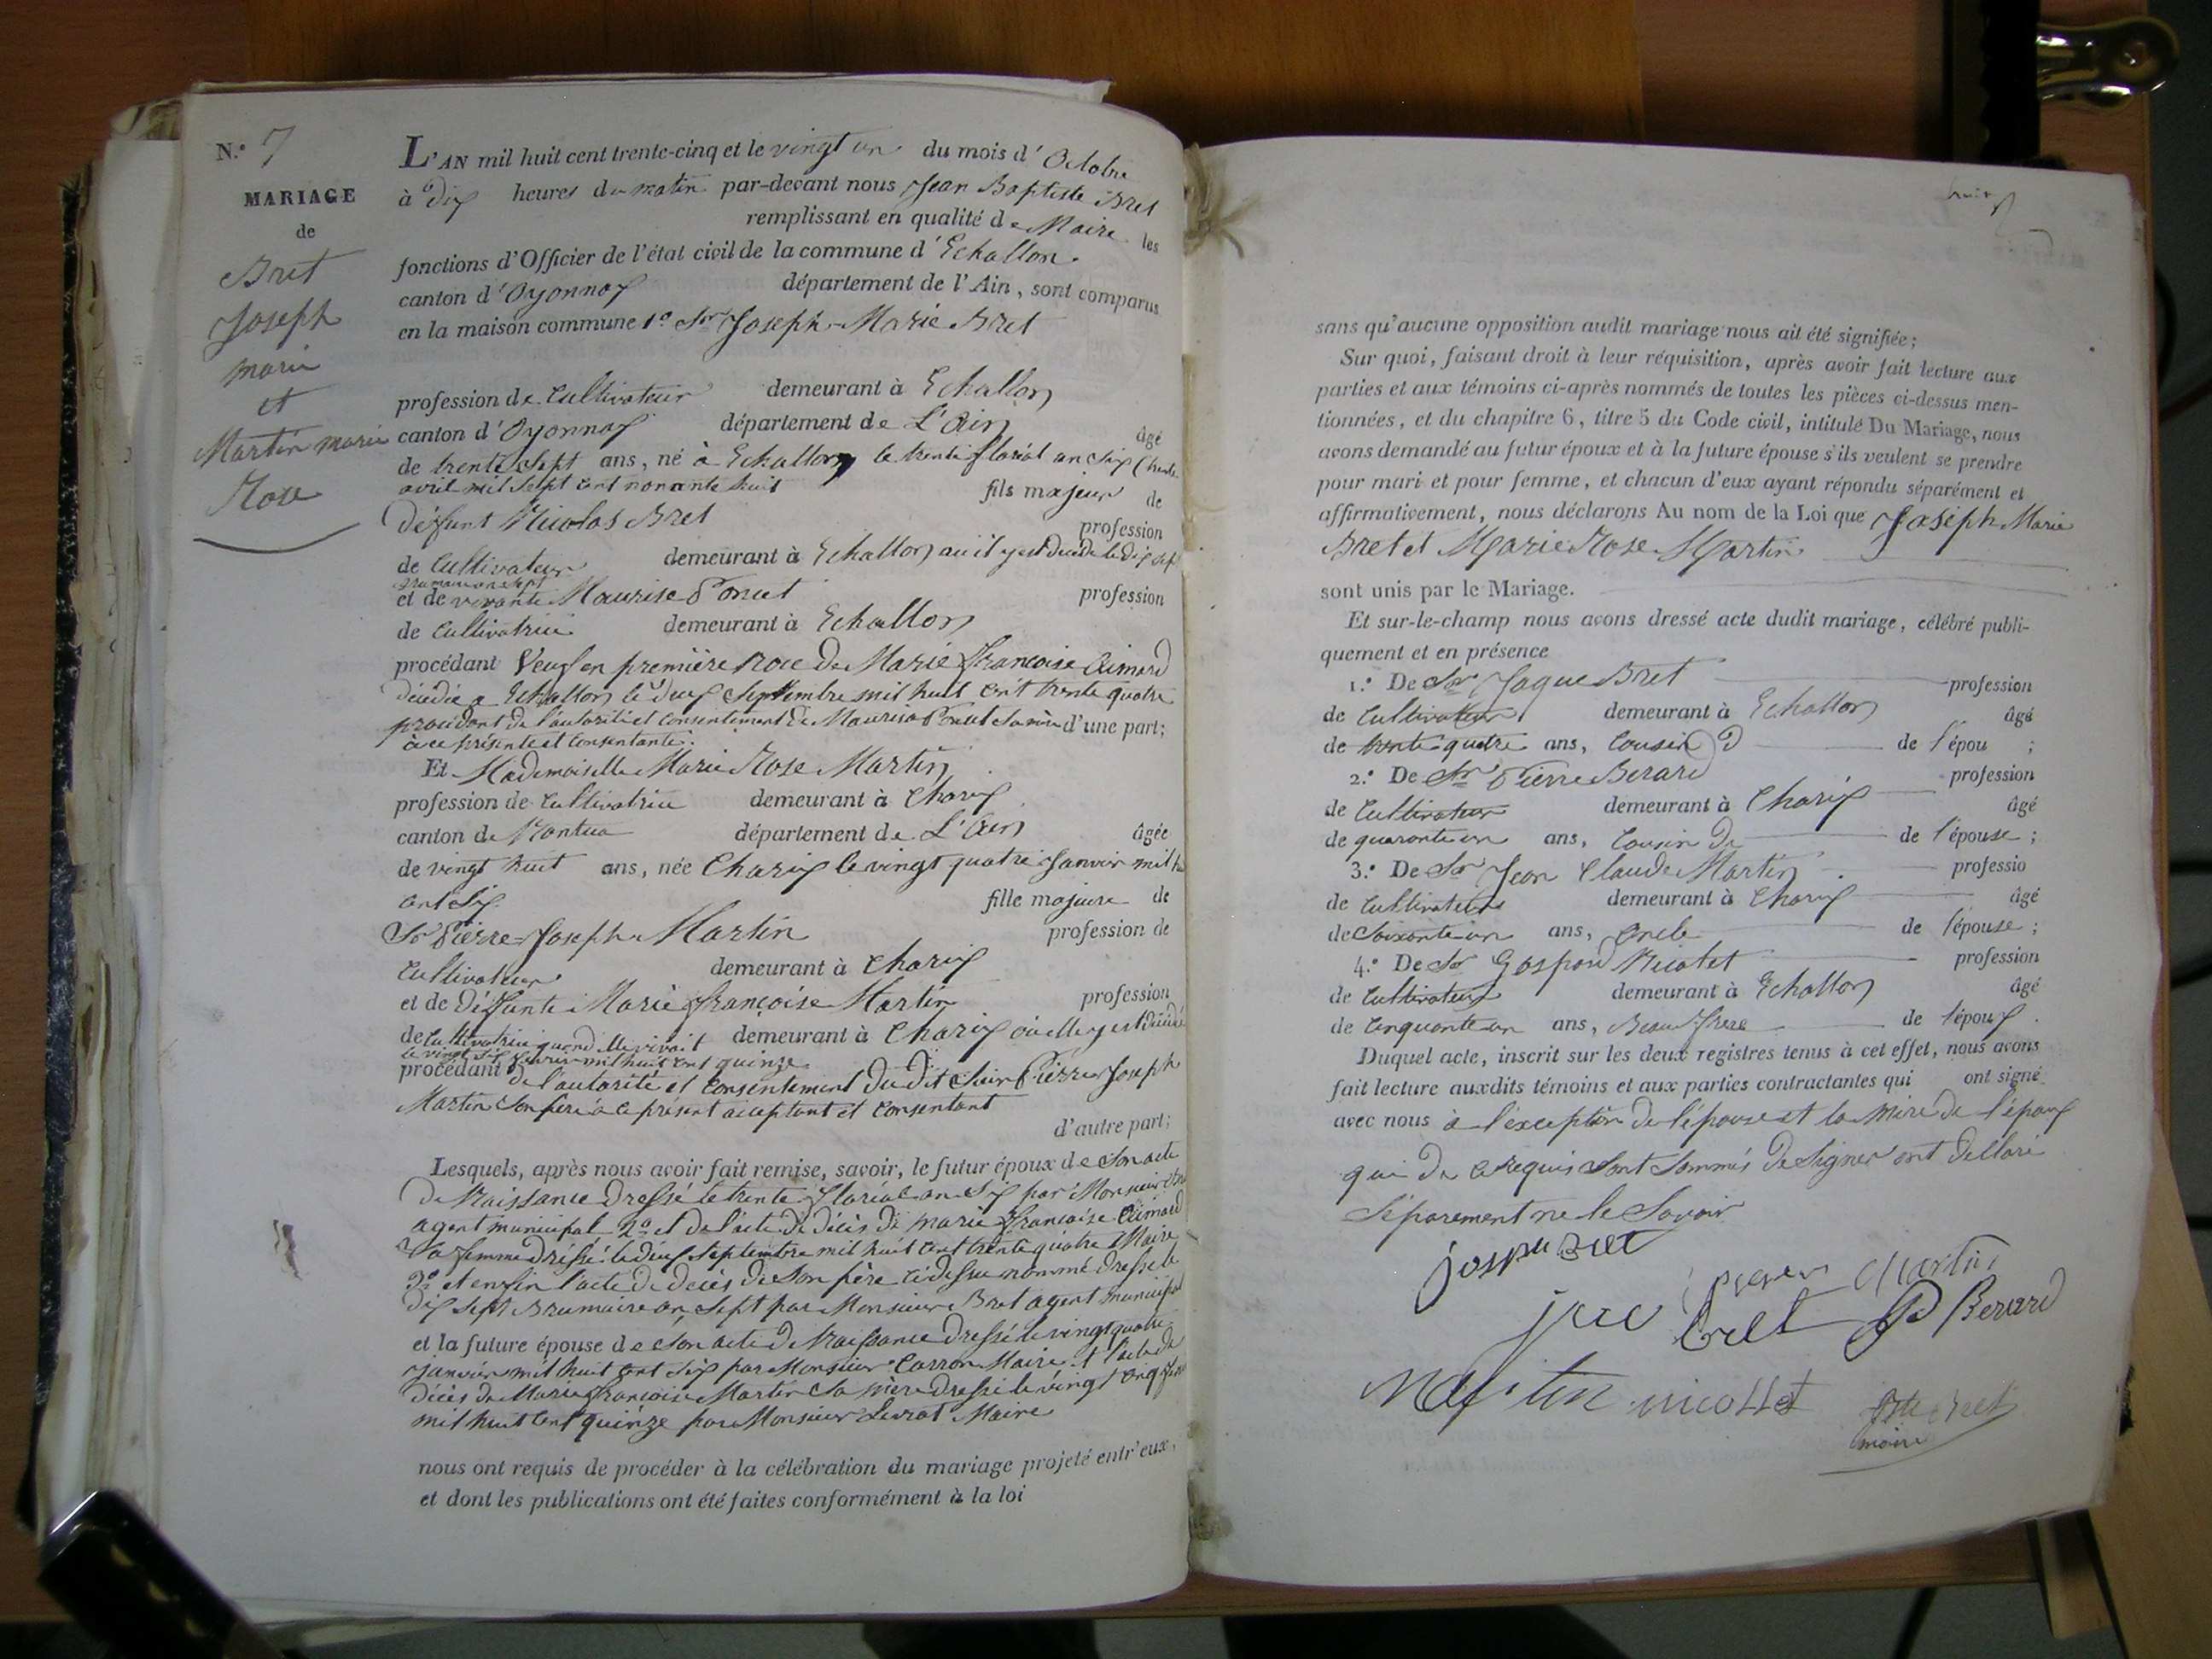 N.º 7
MARIAGE
de
Bret
Joseph
marie
et
Martin marie
Rose
L'AN mil huit cent trente-cinq et le vingt un du mois d'Octobre
à dix heures du matin par-devant nous Jean Baptiste Bret
remplissant en qualité de Maire les
fonctions d'Officier de l'état civil de la commune d'Echallon
canton d'Oyonnax département de l'Ain, sont comparus
en la maison commune 1º Sr Joseph-Marie Bret
profession de Cultivateur demeurant à Echallon
canton d'Oyonnax département de L'Ain âgé
de trente sept ans, né à Echallon le trente floréal an six (trente
avril mil sept cent nonante huit fils majeur de
déffunt Nicolas Bret profession
de Cultivateur demeurant à Echallon où il y est décédé le dix sept
brumaire an sept
et de vivante Maurise Poncet profession
de Cultivatrice demeurant à Echallon
procédant Veuf en première noce de Marie françoise Aimard
décédée a Echallon le deux Septembre mil huit cent trente quatre
procédant de l'autorité et consentement de Maurise Poncet sa mère d'une part;
à ce présente et consentante.
Et Mademoiselle Marie Rose Martin
profession de Cultivatrice demeurant à Charix
canton de Nantua département de L'Ain âgée
de vingt huit ans, née Charix le vingt quatre Janvier mil huit
cent six fille majeure de
Sr Pierre-Joseph Martin profession de
Cultivateur demeurant à Charix
et de déffunte Marie françoise Martin profession
de Cultivatrice quand elle vivait demeurant à Charix où elle y est décédé
le vingt six février mil huit cent quinze
procédant de l'autorité et Consentement du dit Sieur Pierre Joseph
Martin Son père à ce présent acceptant et Consentant
d'autre part;
Lesquels, après nous avoir fait remise, savoir, le futur époux de Son acte
de Naissance dressé le trente floréal an Six par Monsieur Bret
agent municipal 2º et de l'acte de décès de marie françoise Aimard
Sa femme dressé le deux Septembre mil huit cent trente quatre Maire
3º et enfin l'acte de decès de Son père ci dessu nommé dressé le
dix Sept Brumaire an Sept par Monsieur Bret agent municipal
et la future épouse de Son acte de Naissance dressé le vingt quatre
janvier mil huit cent Six par Monsieur Carron Maire et l'acte de
décès de Marie françoise Martin Sa mère dressé le vingt cinq
mil huit cent quinze par Monsieur Levrat Maire
nous ont requis de procéder à la célébration du mariage projeté entr'eux,
et dont les publications ont été faites conformément à la loi
huit
sans qu'aucune opposition audit mariage nous ait été signifiée;
Sur quoi, faisant droit à leur réquisition, après avoir fait lecture aux
parties et aux témoins ci-après nommés de toutes les pièces ci-dessus men-
tionnées, et du chapitre 6, titre 5 du Code civil, intitulé Du Mariage, nous
avons demandé au futur époux et à la future épouse s'ils veulent se prendre
pour mari et pour femme, et chacun d'eux ayant répondu séparément et
affirmativement, nous déclarons Au nom de la Loi que Joseph Marie
Bret et Marie Rose Martin
sont unis par le Mariage.
Et sur-le-champ nous avons dressé acte dudit mariage, célébré publi-
quement et en présence
1.º De Sr Jaque Bret profession
de Cultivateur demeurant à Echallon âgé
de trente quatre ans, Cousin d de l'épou ;
2.º De Sr Pierre Berard profession
de Cultivateur demeurant à Charix âgé
de quarante un ans, Cousin de de l'épouse ;
3.º De Sr Jean Claude Martin professio
de Cultivateur demeurant à Charix âgé
de Soixante un ans, Oncle de l'épouse ;
4.º De Sr Gaspard Nicolet profession
de Cultivateur demeurant à Echallon âgé
de Cinquante un ans, Beau frere de l'époux .
Duquel acte, inscrit sur les deux registres tenus à cet effet, nous avons
fait lecture auxdits témoins et aux parties contractantes qui ont signé
avec nous à l'exception de l'épouse et la Mère de l'époux
qui de ce requis Sont Sommés de Signer ont déllaré
Séparement ne le Savoir
Martin
Bret P Berard
Martin nicollet Bret
maire